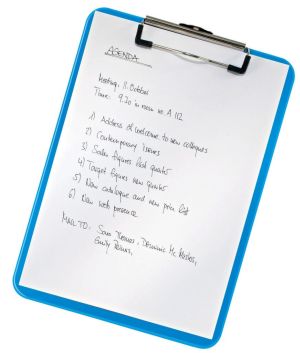 AGENDA
Meeting, 11. October
Time: 9.30 in room no. A 112
1) Address of welcome to new colleagues
2) Contemporary issues
3) Sales figures last quarter
4) Target figures new quarter
5) New catalogue and new price list
6) New web presence
MAIL TO: Sam Thomas, Dominic Mc
Emily